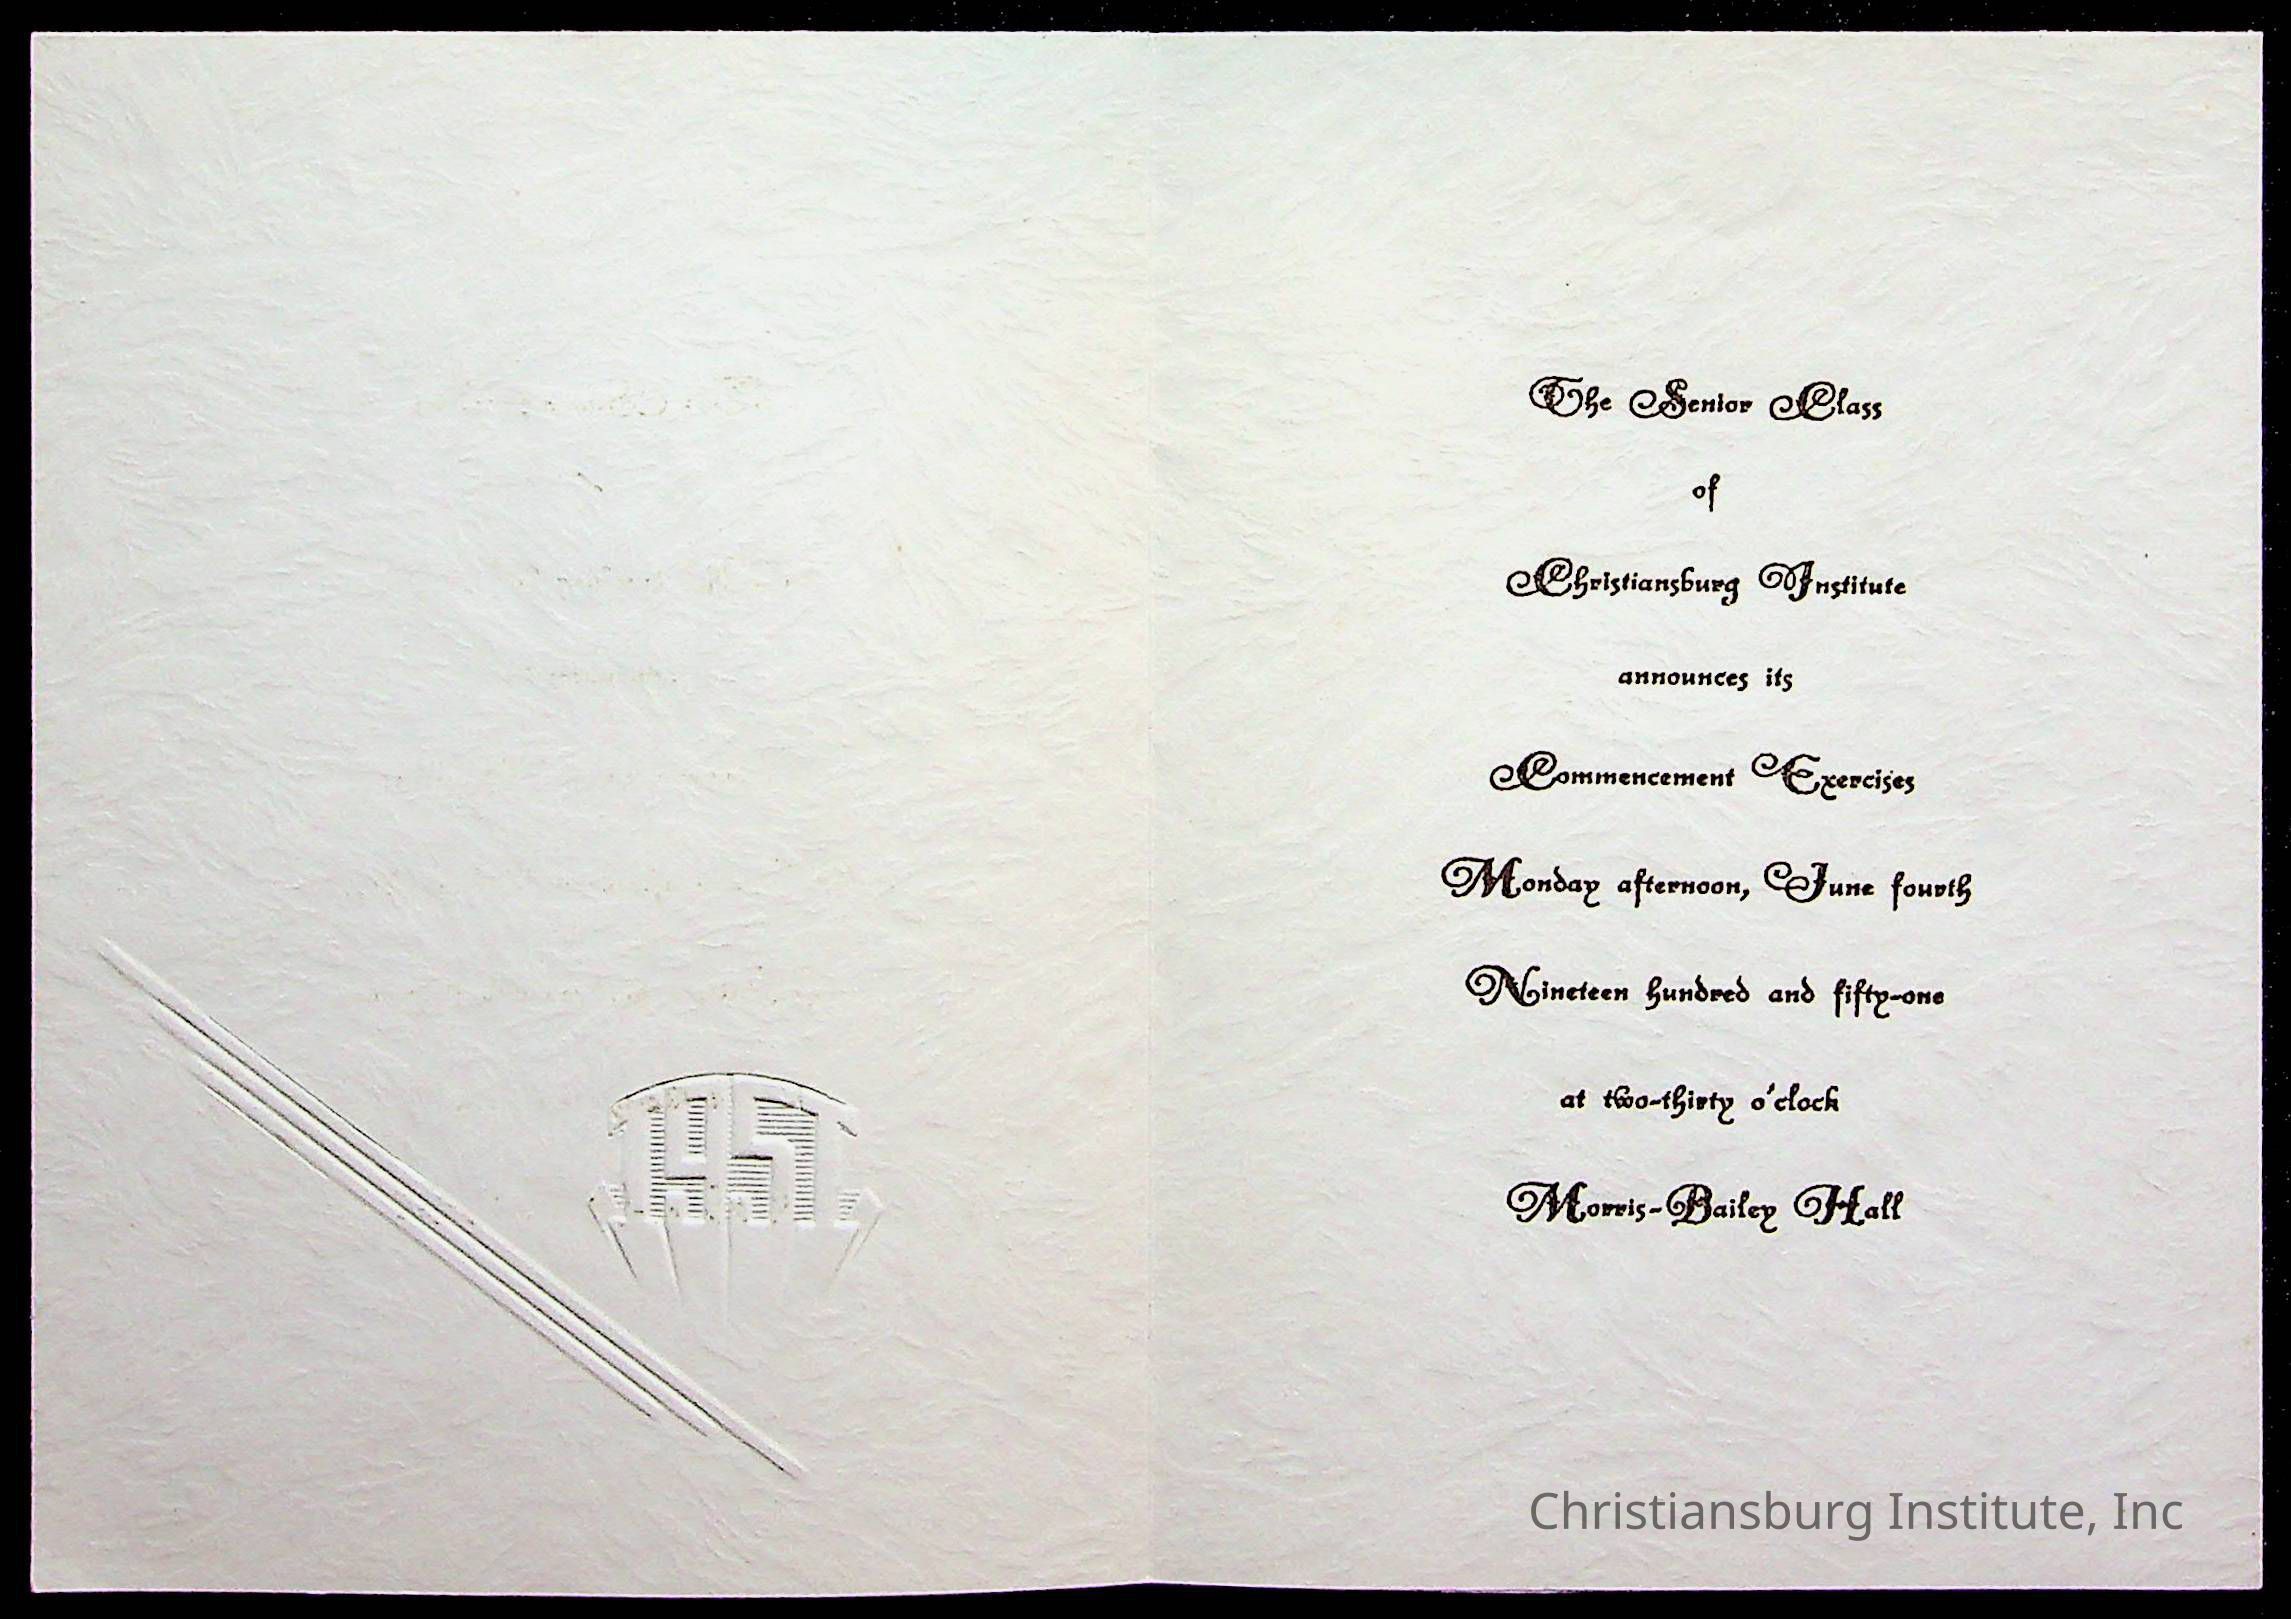 The Senior Class
of
Christiansburg Institute
announces its
Commencement Exercises
Monday afternoon, June fourth
Nineteen hundred and fifty-one
at two-thirty o'clock
Morris-Bailey Hall
Christiansburg Institute, Inc